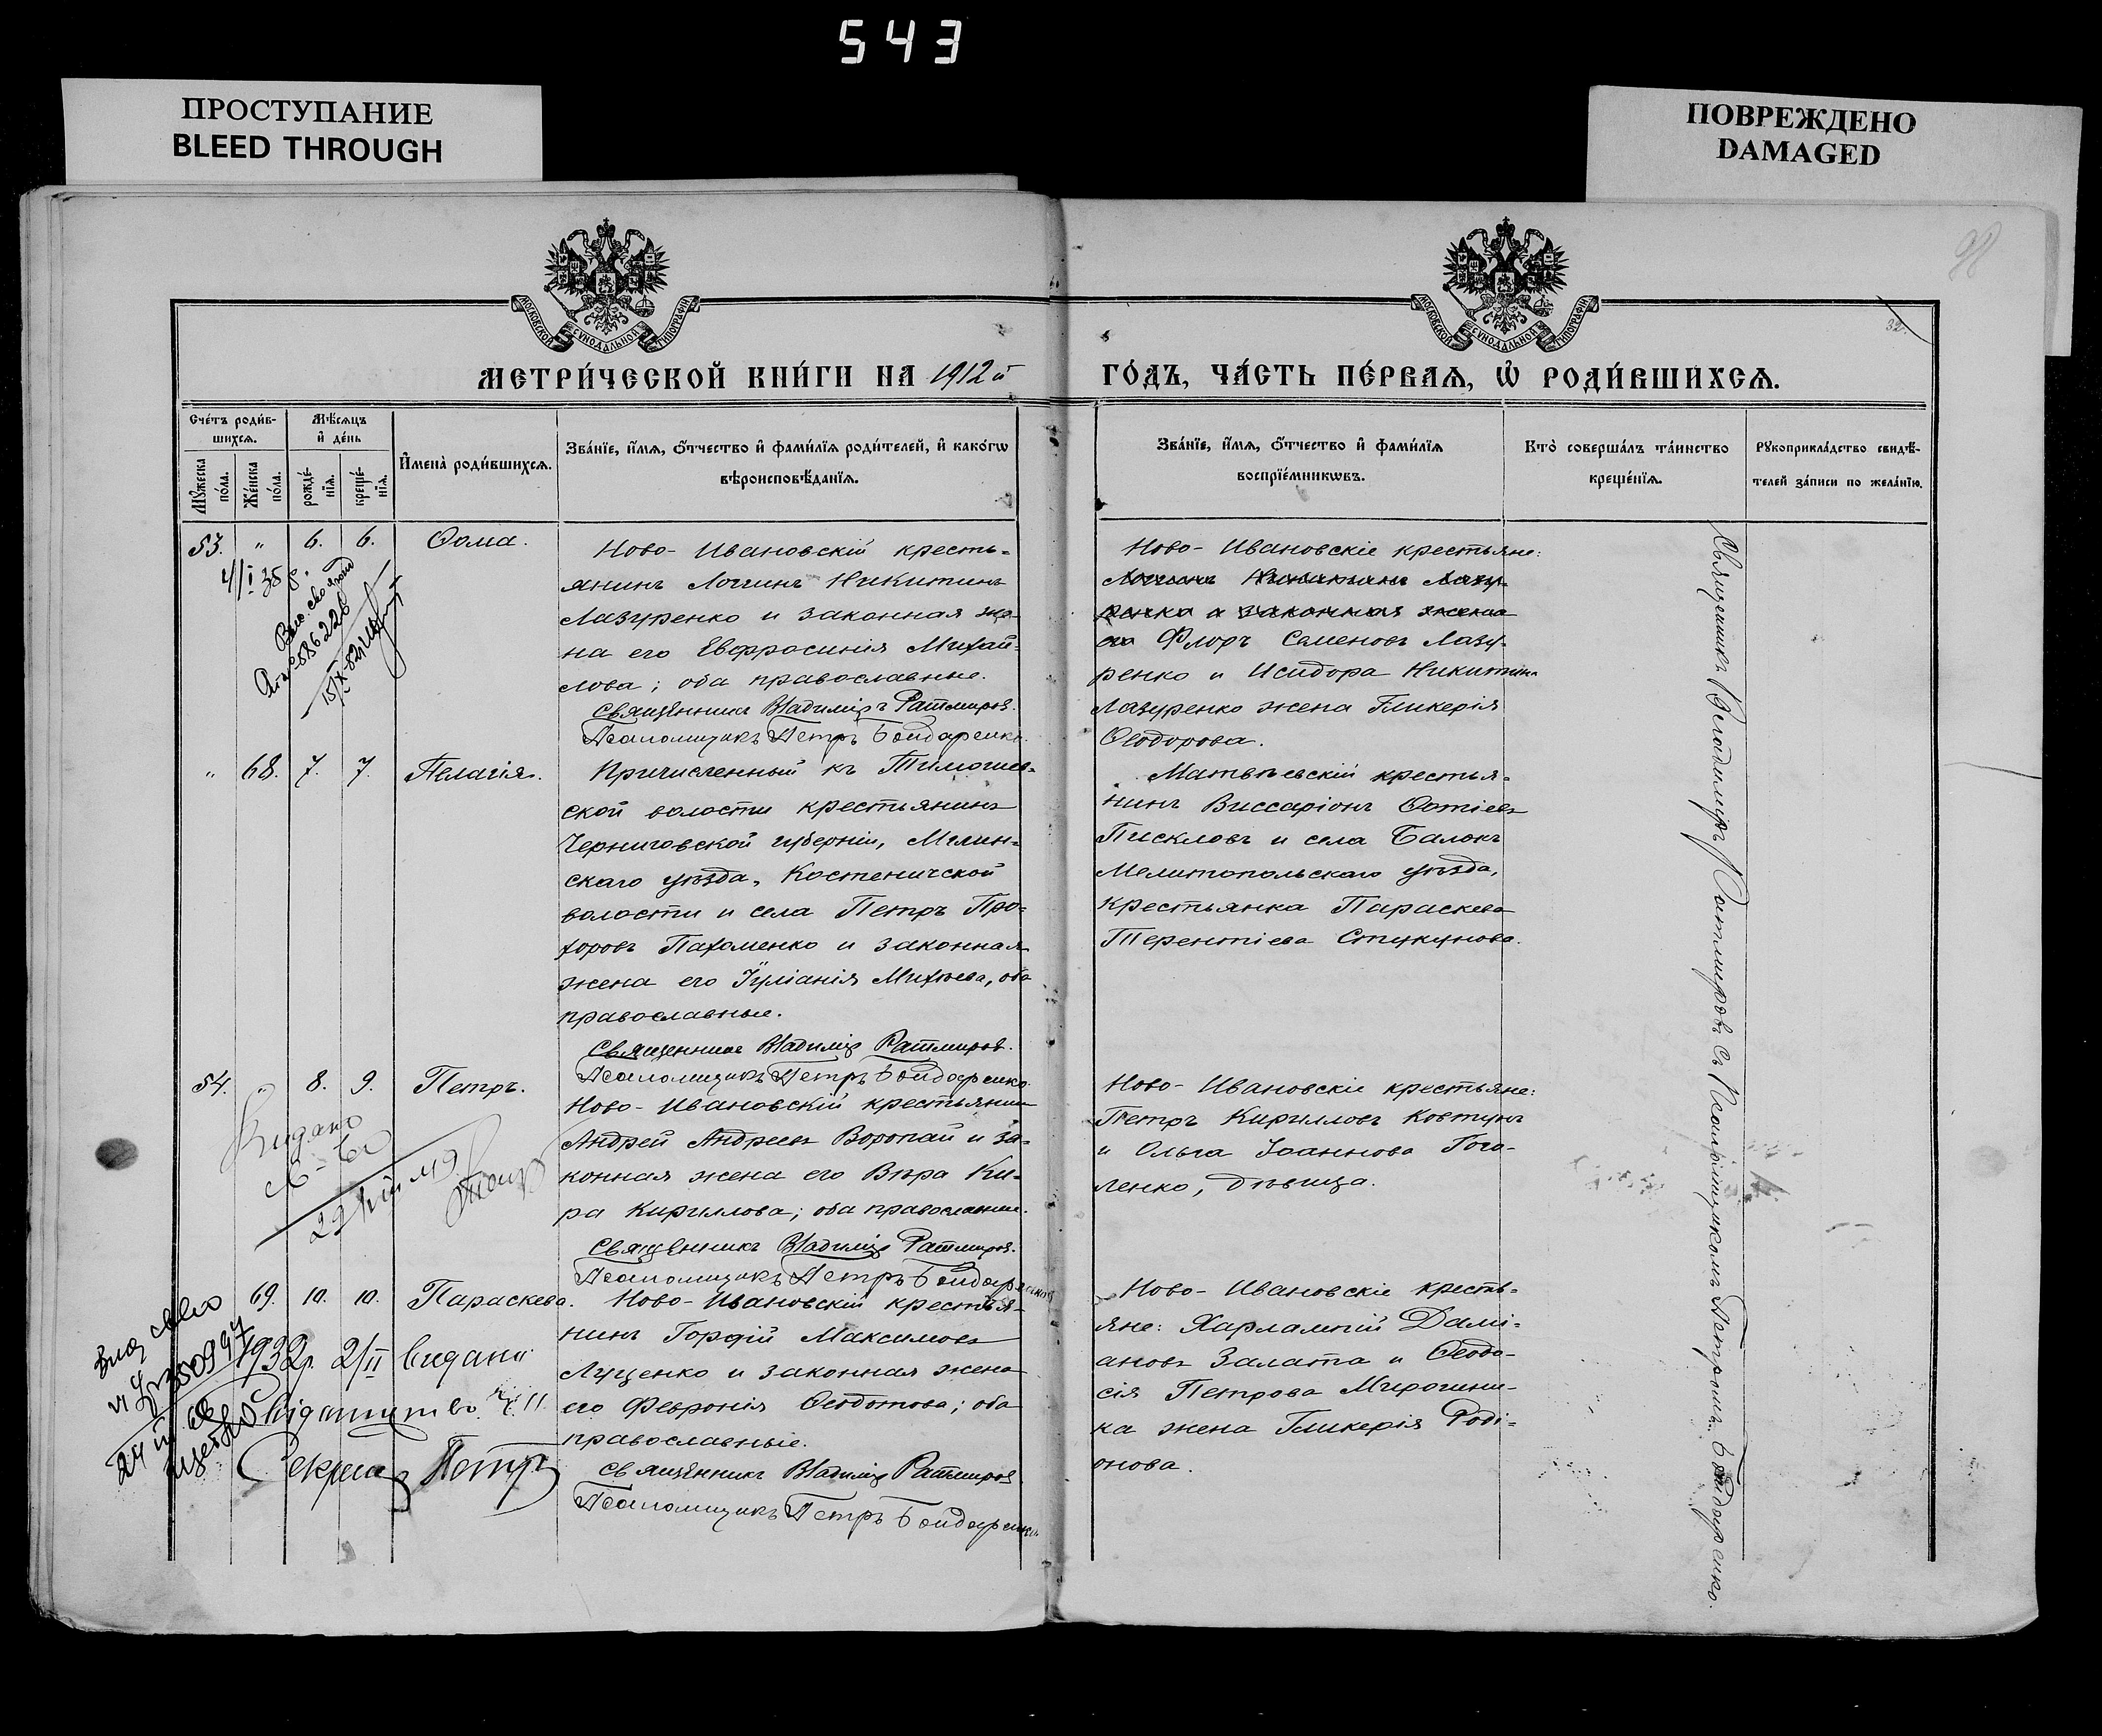 543
ПРОСТУПАНИЕ
BLEED THROUGH
ПОВРЕЖДЕНО
DAMAGED
МОСКОВСКОЙ СѴНОДАЛЬНОЙ ТИПОГРАФІИ
МОСКОВСКОЙ СѴНОДАЛЬНОЙ ТИПОГРАФІИ
32.
МЕТРИ́ЧЕСКОЙ КНИ́ГИ НА 1912й
ГО́ДЪ, ЧА́СТЬ ПЕ́РВАѦ, Ѡ҆ РОДИ́ВШИХСѦ.
Сче́тъ роди́в-
шихсѧ.
Мꙋ́жеска по́ла.
Же́нска по́ла.
Мѣ́сѧцъ
и҆ де́нь
рожде́-
нїѧ.
креще́-
нїѧ.
И҆мена̀ роди́вшихсѧ.
Зва́нїе, и҆́мѧ, ѻ҆́тчество и҆ фами́лїѧ роди́телей, и҆ како́гѡ
вѣроисповѣ́данїѧ.
Зва́нїе, и҆́мѧ, ѻ҆́тчество и҆ фами́лїѧ
воспрїе́мникѡвъ.
Кто̀ соверша́лъ та́инство
креще́нїѧ.
Рꙋкоприкла́дство свидѣ́-
телей за́писи по жела́нїю.
53. " 6. 6. Ѳома.
Ново-Ивановскій кресть-
янинъ Логгинъ Никитинъ
Лазуренко и законная же-
на его Евфросинія Михай-
лова; оба православные.
Священникъ Владиміръ Ратмиров.
Псаломщикъ Петръ Бондаренко.
Ново-Ивановскіе крестьяне:
Логгинъ Никитинъ Лазу-
ренко и законная жена
его Флоръ Семеновъ Лазу-
ренко и Исидора Никитина
Лазуренко жена Гликерія
Ѳеодорова.
" 68. 7. 7. Пелагія.
Причисленный къ Тимошев-
ской волости крестьянинъ
Черниговской губерніи, Мглин-
скаго уѣзда, Костеничской
волости и села Петръ Про-
хоровъ Пахоменко и законная
жена его Іуліанія Михѣева, оба
православные.
Священникъ Владиміръ Ратмиров.
Псаломщикъ Петръ Бондаренко
Матвѣевскій крестья-
нинъ Виссаріонъ Фотіевъ
Пискловъ и села Балокъ
Мелитопольскаго уѣзда,
крестьянка Параскева
Терентіева Стукунова.
54. " 8. 9. Петръ.
Ново-Ивановскій крестьянинъ
Андрей Андреевъ Воропай и за-
конная жена его Вѣра Ки-
ра Кириллова; оба православные.
Священникъ Владиміръ Ратмиров.
Псаломщикъ Петръ Бондаренко
Ново-Ивановскіе крестьяне:
Петръ Кирилловъ Ковтунъ
и Ольга Іоаннова Гого-
ленко, дѣвица.
Видано
69. 10. 10. Параскева.
Ново-Ивановскій крестья-
нинъ Гордій Максимовъ
Луценко и законная жена
его Февронія Ѳеодотова; оба
православные.
Священникъ Владиміръ Ратмиров
Псаломщикъ Петръ Бондаренко
Ново-Ивановскіе кресть-
яне: Харлампій Дамі-
ановъ Залата и Ѳеодо-
сія Петрова Мирошни-
ка жена Гликерія Роді-
онова.
1932р. 2/II видано
свідоцтво
Секрет
Священникъ Владиміръ Ратмировъ съ Псаломщикомъ Петромъ Бондаренко.